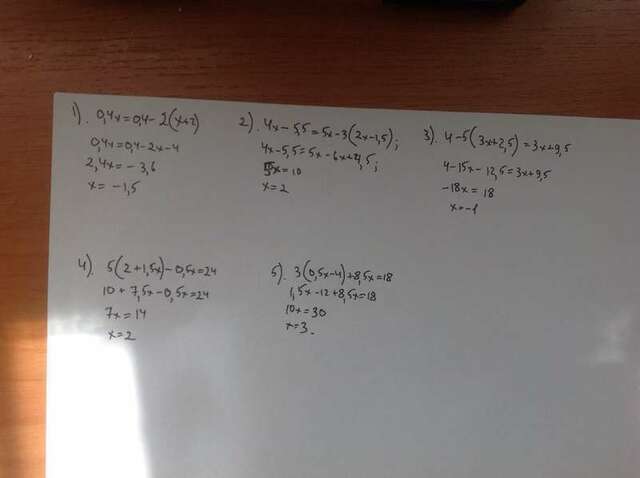 1). 0,4x=0,4-2(x+2)
0,4x=0,4-2x-4
2,4x=-3,6
x=-1,5
2). 4x-5,5=5x-3(2x-1,5);
4x-5,5=5x-6x+4,5;
5x=10
x=2
3). 4-5(3x+2,5)=3x+9,5
4-15x-12,5=3x+9,5
-18x=18
x=-1
4). 5(2+1,5x)-0,5x=24
10+7,5x-0,5x=24
7x=14
x=2
5). 3(0,5x-4)+8,5x=18
1,5x-12+8,5x=18
10x=30
x=3.